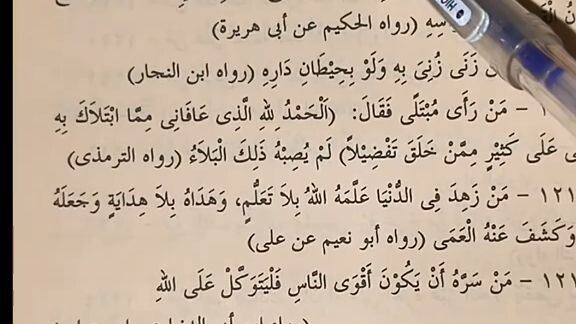 سِهِ (رواه الحكيم عن أبى هريرة)
زَنَى زُنِىَ بِهِ وَلَوْ بِحِيْطَانِ دَارِهِ (رواه ابن النجار)
– مَنْ رَأَى مُبْتَلًى فَقَالَ: (اَلْحَمْدُ لِلّٰهِ الَّذِى عَافَانِى مِمَّا ابْتَلَاكَ بِهِ
عَلَى كَثِيْرٍ مِمَّنْ خَلَقَ تَفْضِيْلاً) لَمْ يُصِبْهُ ذٰلِكَ الْبَلَاءُ (رواه الترمذى)
١٢١ – مَنْ زَهِدَ فِى الدُّنْيَا عَلَّمَهُ اللهُ بِلاَ تَعَلُّمٍ، وَهَدَاهُ بِلاَ هِدَايَةٍ وَجَعَلَهُ
وَكَشَفَ عَنْهُ الْعَمَى (رواه أبو نعيم عن على)
١٢١ – مَنْ سَرَّهُ أَنْ يَكُوْنَ أَقْوَى النَّاسِ فَلْيَتَوَكَّلْ عَلَى اللهِ